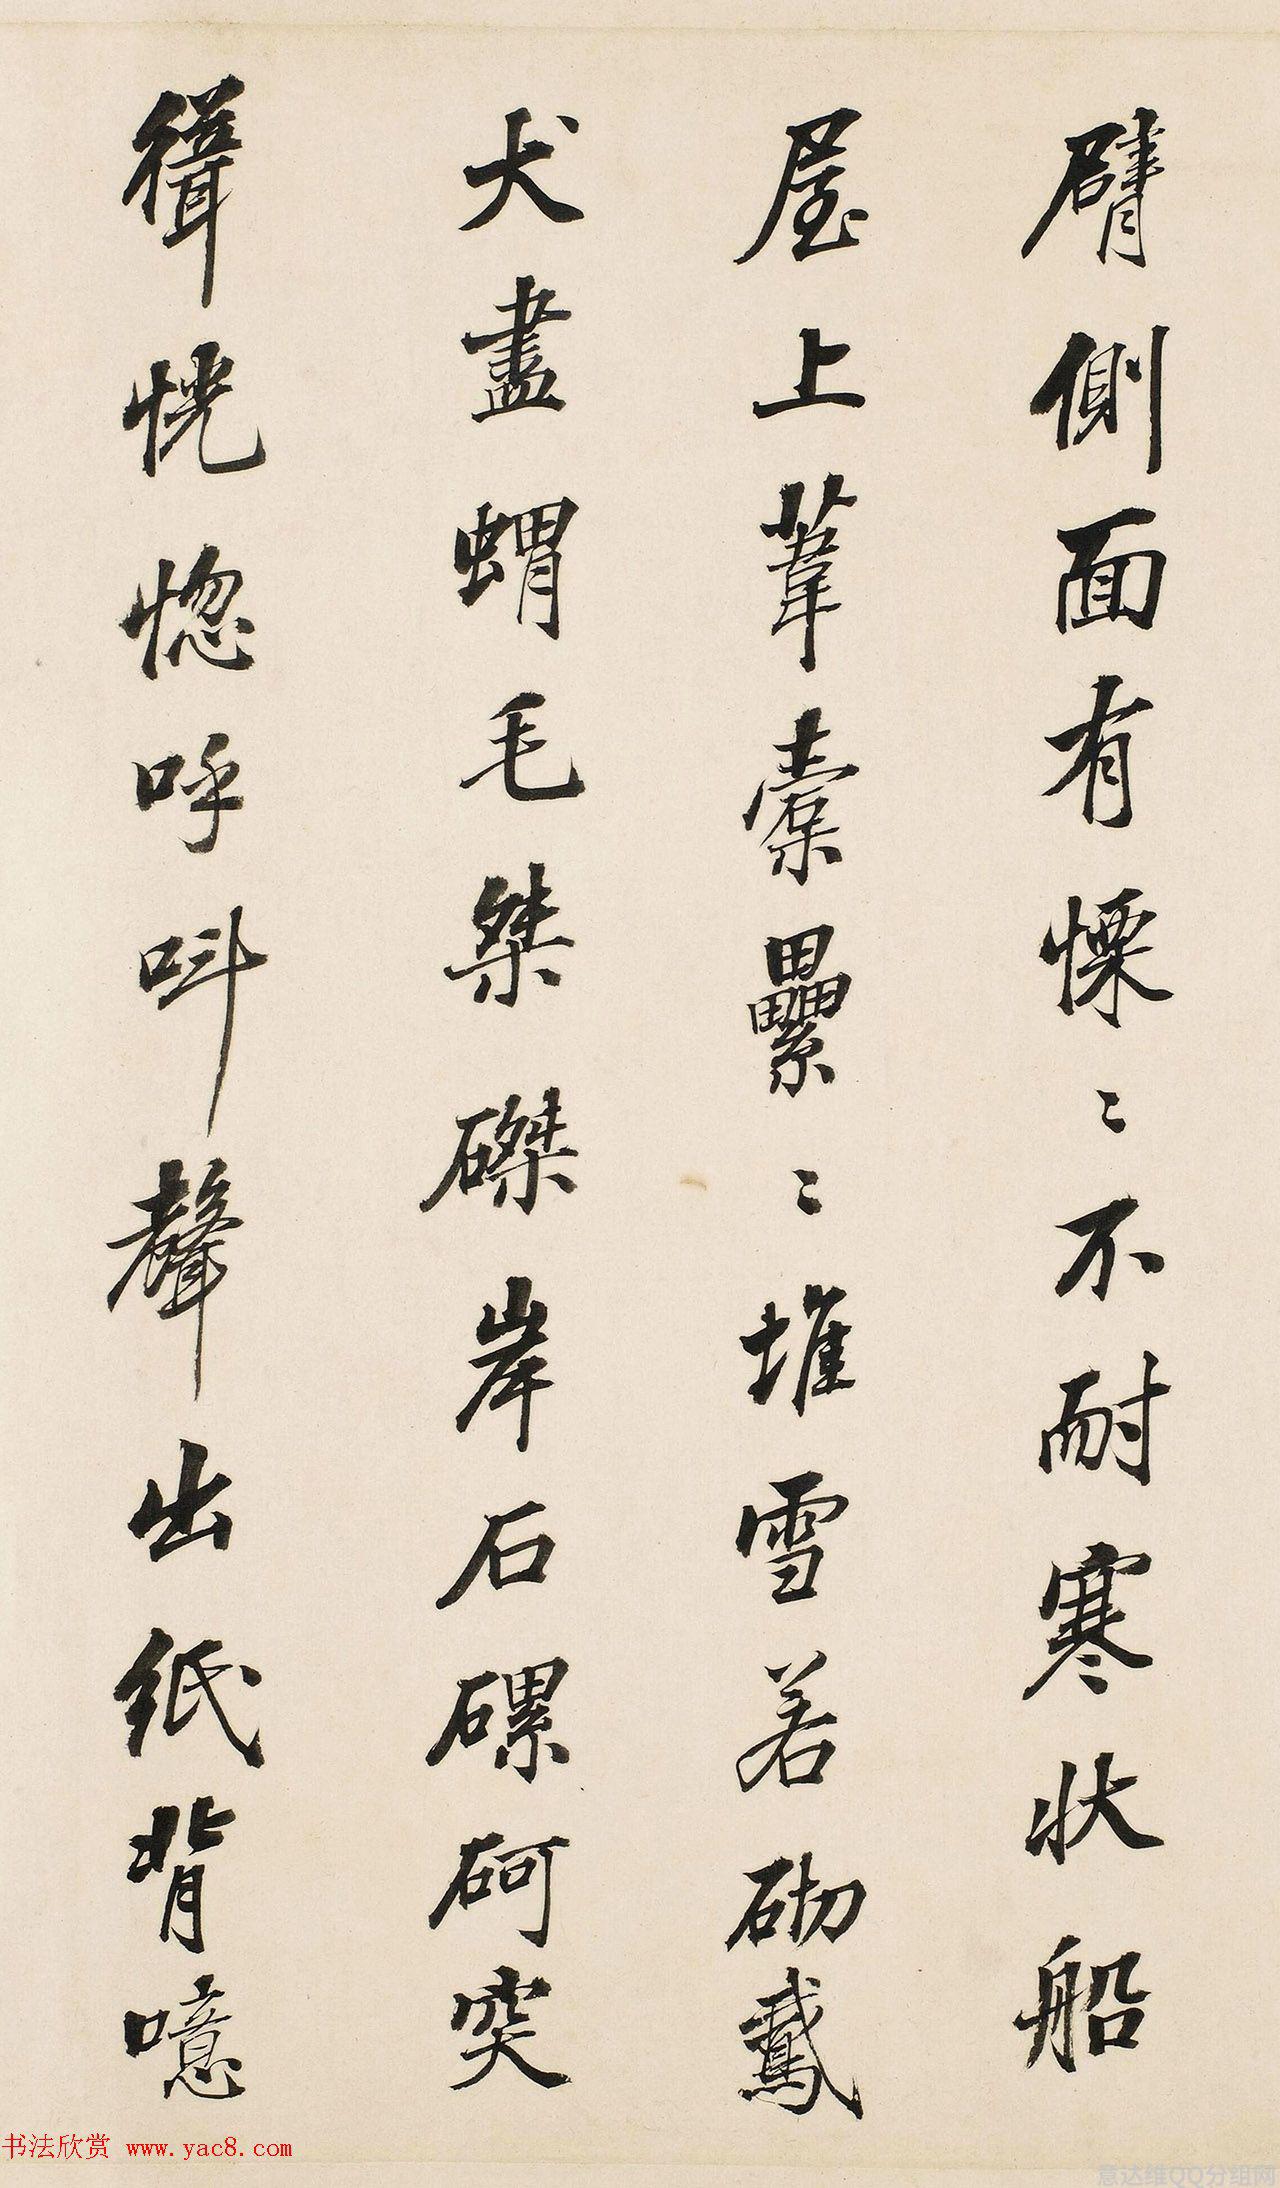 臂側面有慄〻不耐寒状船
屋上葦橐纍〻堆雪若砌鵞
犬盡蝟毛桀磔岸石磥砢突
緝恍惚呼呌聲出紙背噫
书法欣赏 www.yac8.com
意达维QQ分组网